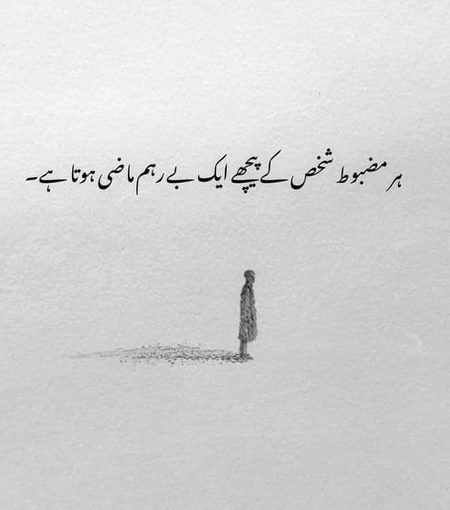 ہر مضبوط شخص کے پیچھے ایک بے رہم ماضی ہوتا ہے۔